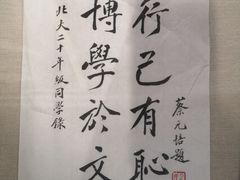 北大二十年級同學錄
博學於文
行己有恥
蔡元培題